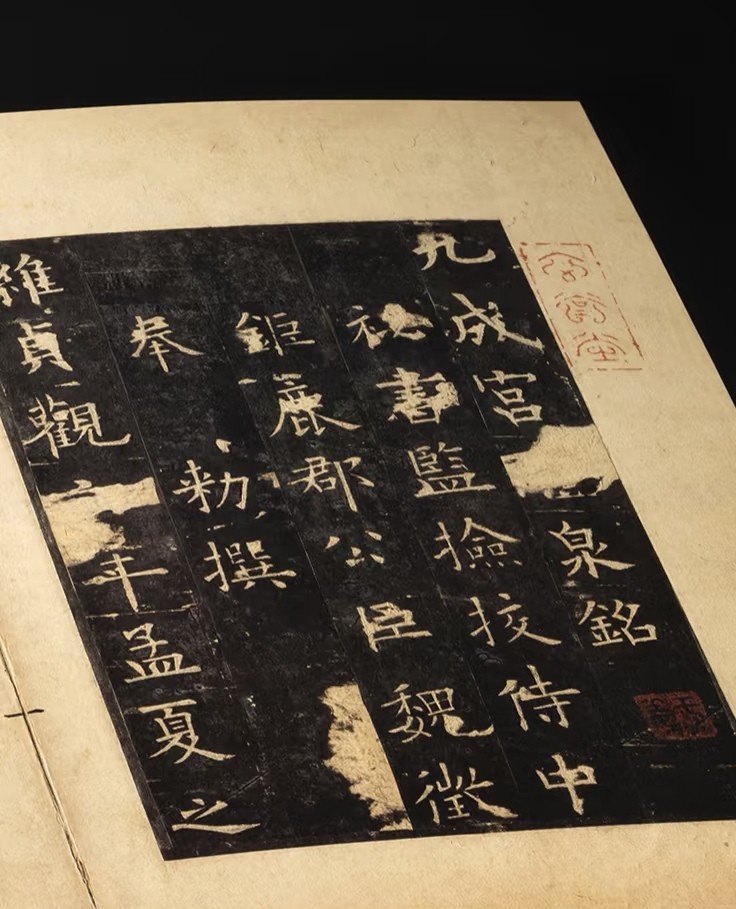 九成宮泉銘
秘書監撿挍侍中
鉅鹿郡公臣魏徵
奉勑撰
維貞觀年孟夏之